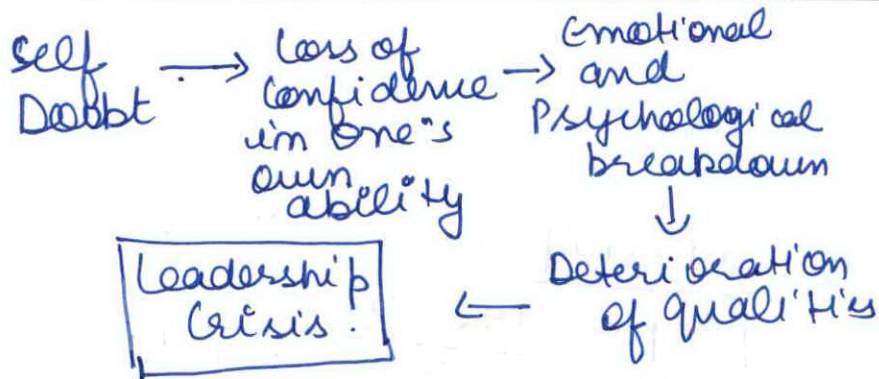 Self
Doubt
→ Loss of
confidence
in one's
own
ability
→ Emotional
and
Psychological
breakdown
↓
Deterioration
of qualitis
←
Leadership
Crisis.